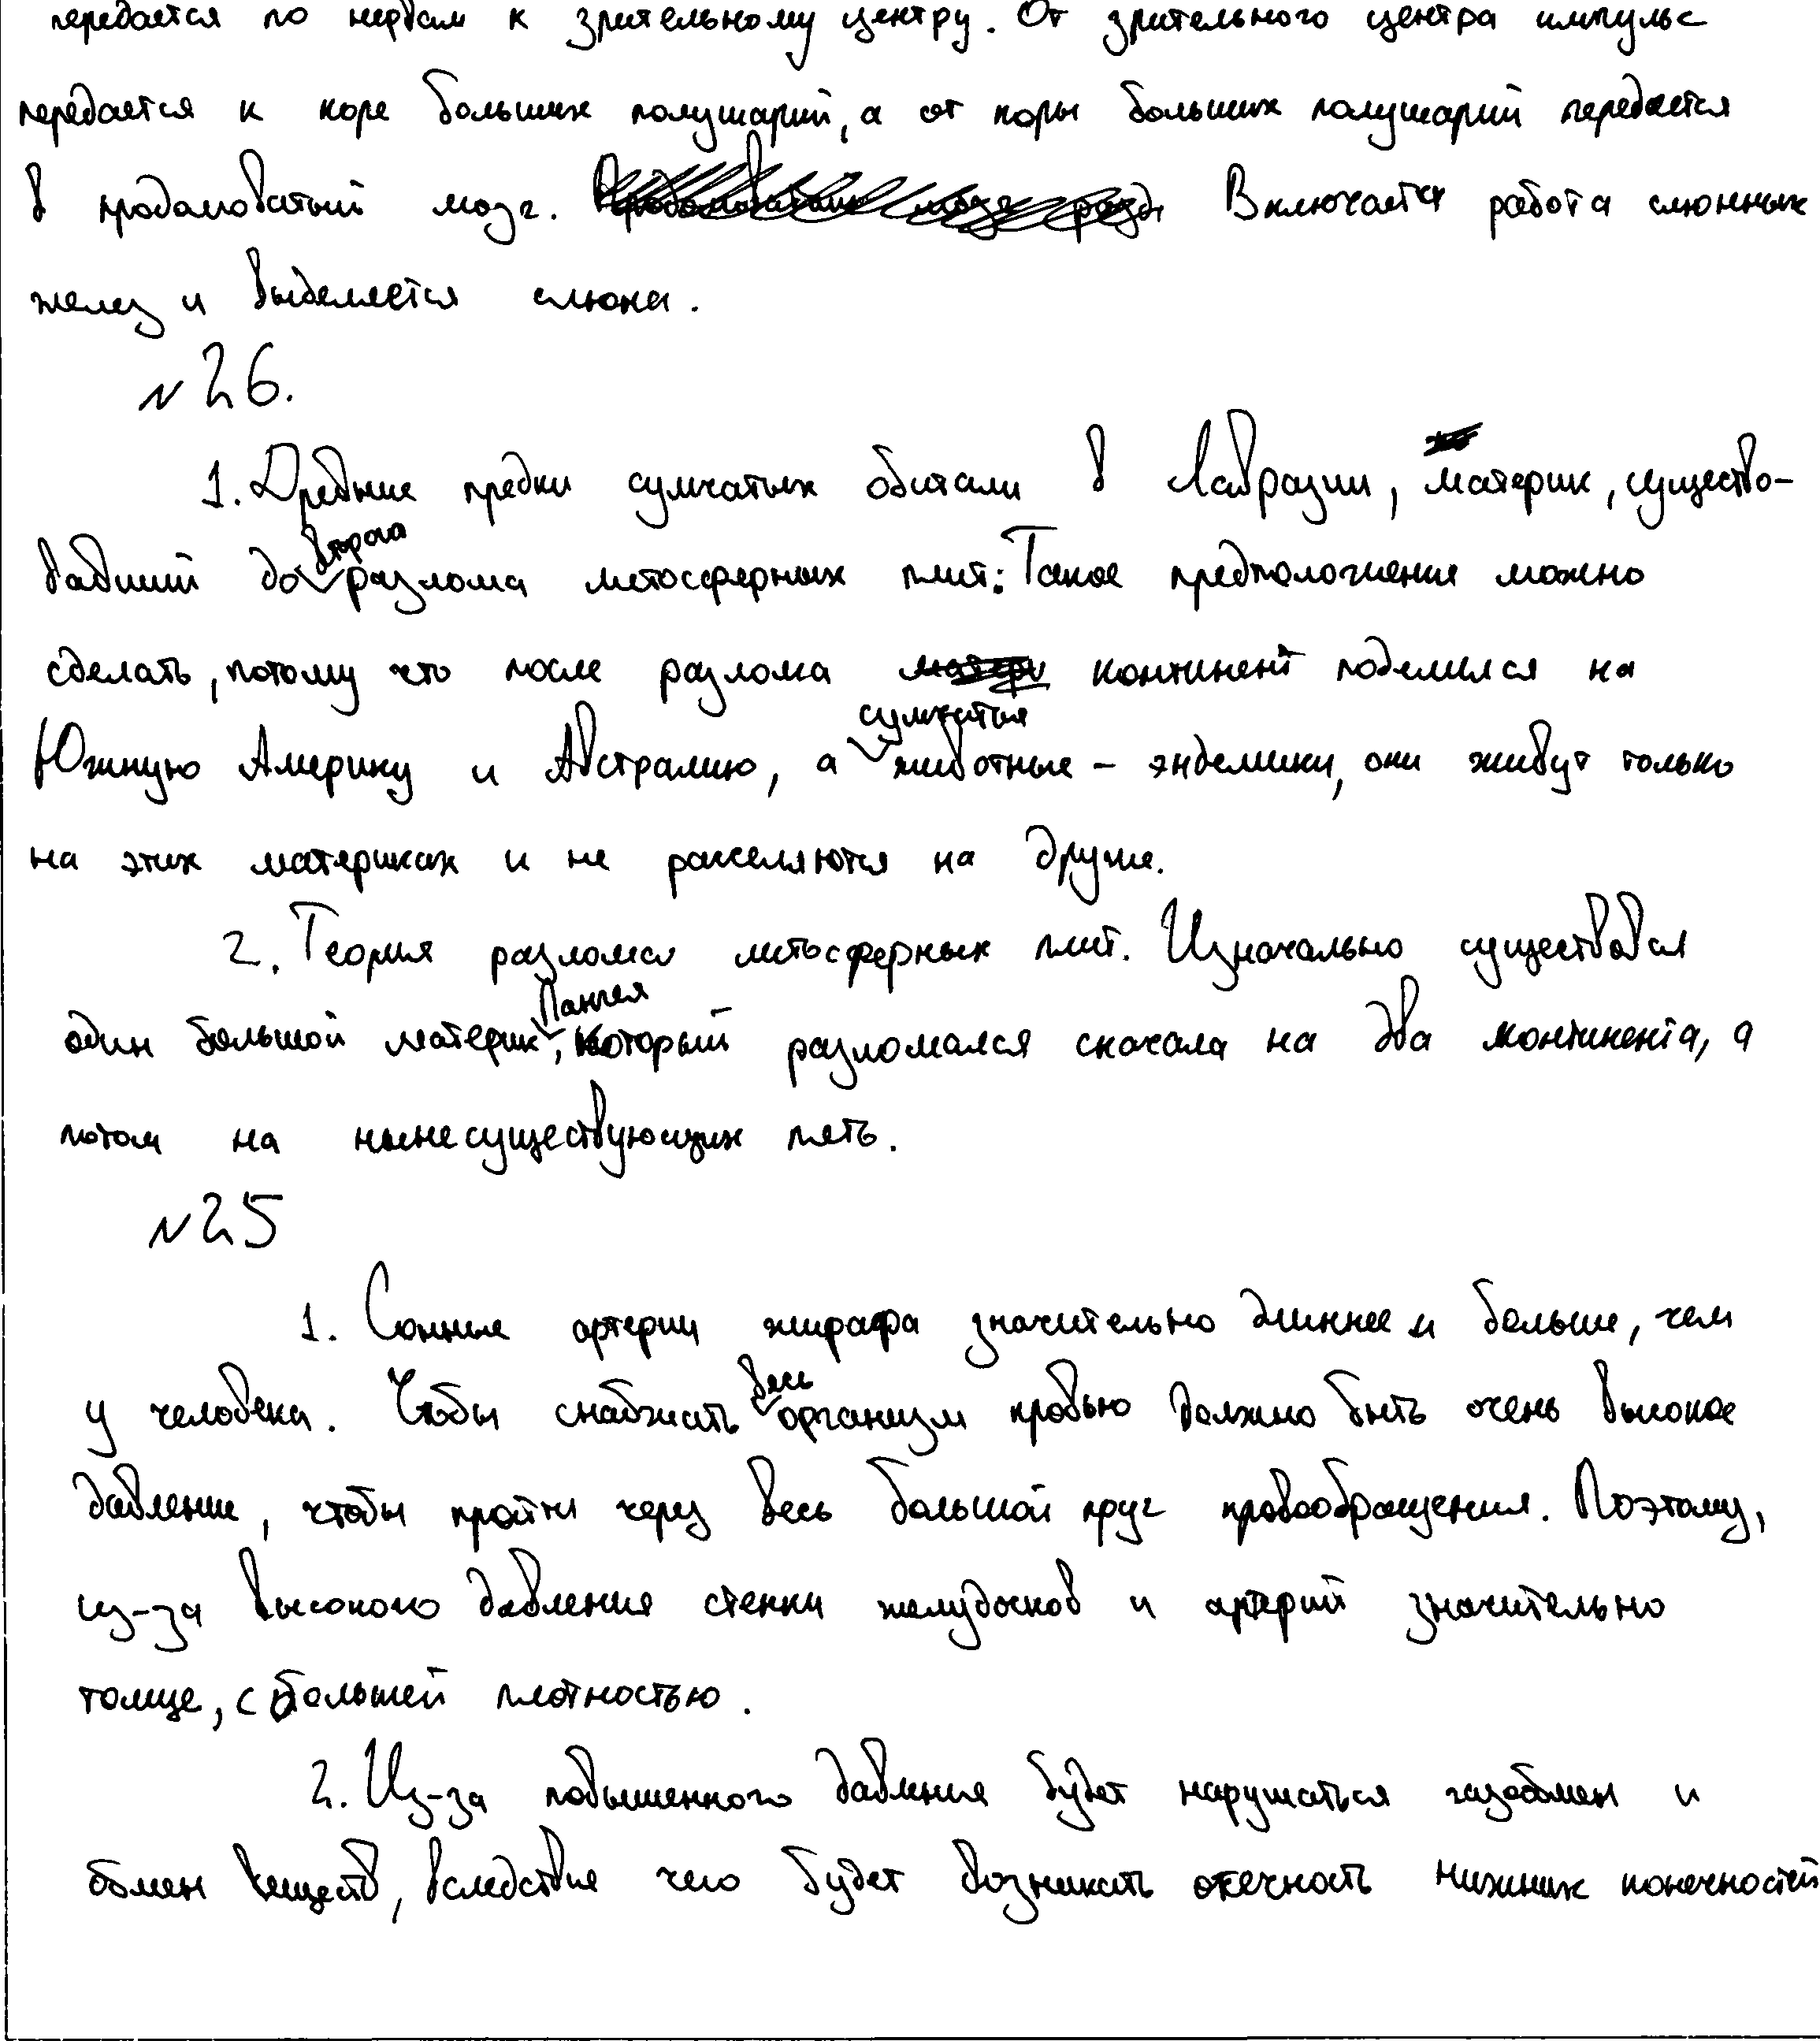 передается по нервам к зрительному центру. От зрительного центра импульс
передается к коре больших полушарий, а от коры больших полушарий передается
в продолговатый мозг. Включается работа слюнных
желез и выделяется слюна.
№26.
1. Древние предки сумчатых обитали в Лавразии, материк, существо-
вавший до второго разлома литосферных плит. Такое предположение можно
сделать, потому что после разлома континент поделился на
Южную Америку и Австралию, а сумчатые животные - эндемики, они живут только
на этих материках и не расселяются на другие.
2. Теория разлома литосферных плит. Изначально существовал
один большой материк Пангея, который разломался сначала на два континента, а
потом на нынесуществующих пять.
№25
1. Сонные артерии жирафа значительно длиннее и больше, чем
у человека. Чтобы снабжать весь организм кровью должно быть очень высокое
давление, чтобы пройти через весь большой круг кровообращения. Поэтому,
из-за высокого давления стенки желудочков и артерий значительно
толще, с большей плотностью.
2. Из-за повышенного давления будет нарушаться газообмен и
обмен веществ, вследствие чего будет возникать отечность нижних конечностей